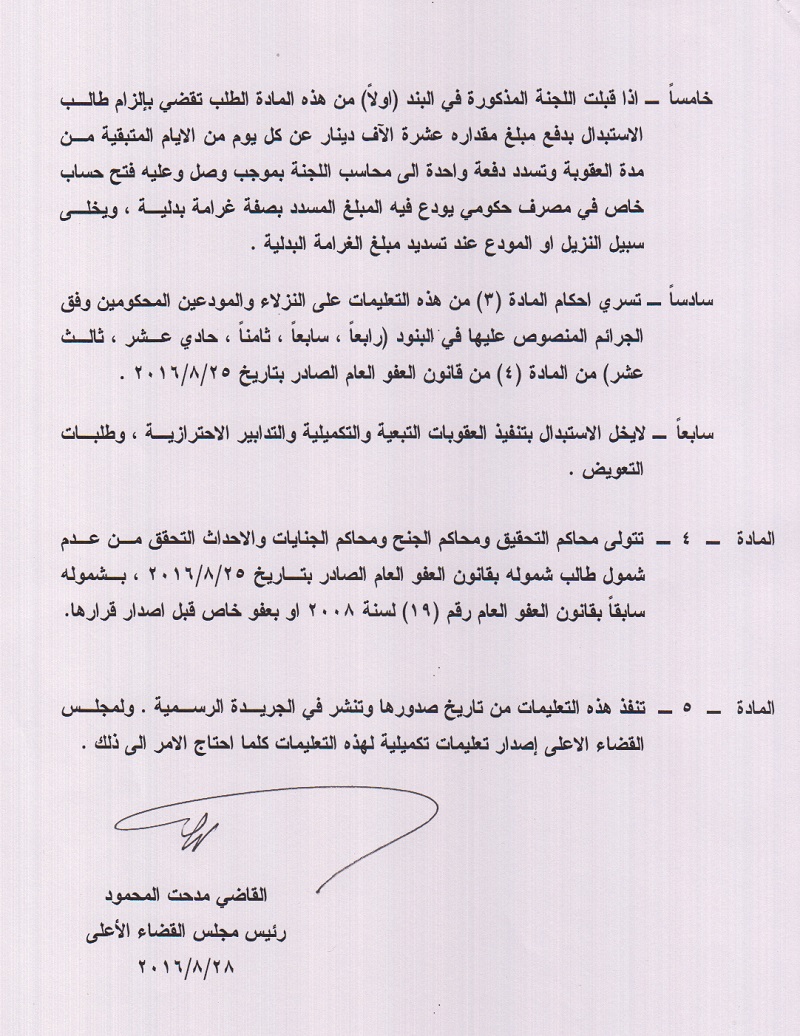 خامساً ــ اذا قبلت اللجنة المذكورة في البند (اولاً) من هذه المادة الطلب تقضي بإلزام طالب
الاستبدال بدفع مبلغ مقداره عشرة الآف دينار عن كل يوم من الايام المتبقية من
مدة العقوبة وتسدد دفعة واحدة الى محاسب اللجنة بموجب وصل وعليه فتح حساب
خاص في مصرف حكومي يودع فيه المبلغ المسدد بصفة غرامة بدلية ، ويخلى
سبيل النزيل او المودع عند تسديد مبلغ الغرامة البدلية .
سادساً ــ تسري احكام المادة (٣) من هذه التعليمات على النزلاء والمودعين المحكومين وفق
الجرائم المنصوص عليها في البنود (رابعاً ، سابعاً ، ثامناً ، حادي عشر ، ثالث
عشر) من المادة (٤) من قانون العفو العام الصادر بتاريخ ٢٠١٦/٨/٢٥ .
سابعاً ــ لايخل الاستبدال بتنفيذ العقوبات التبعية والتكميلية والتدابير الاحترازية ، وطلبات
التعويض .
المادة ــ ٤ ــ تتولى محاكم التحقيق ومحاكم الجنح ومحاكم الجنايات والاحداث التحقق من عدم
شمول طالب شموله بقانون العفو العام الصادر بتاريخ ٢٠١٦/٨/٢٥ ، بشموله
سابقاً بقانون العفو العام رقم (١٩) لسنة ٢٠٠٨ او بعفو خاص قبل اصدار قرارها.
المادة ــ ٥ ــ تنفذ هذه التعليمات من تاريخ صدورها وتنشر في الجريدة الرسمية . ولمجلس
القضاء الاعلى إصدار تعليمات تكميلية لهذه التعليمات كلما احتاج الامر الى ذلك .
القاضي مدحت المحمود
رئيس مجلس القضاء الأعلى
٢٠١٦/٨/٢٨